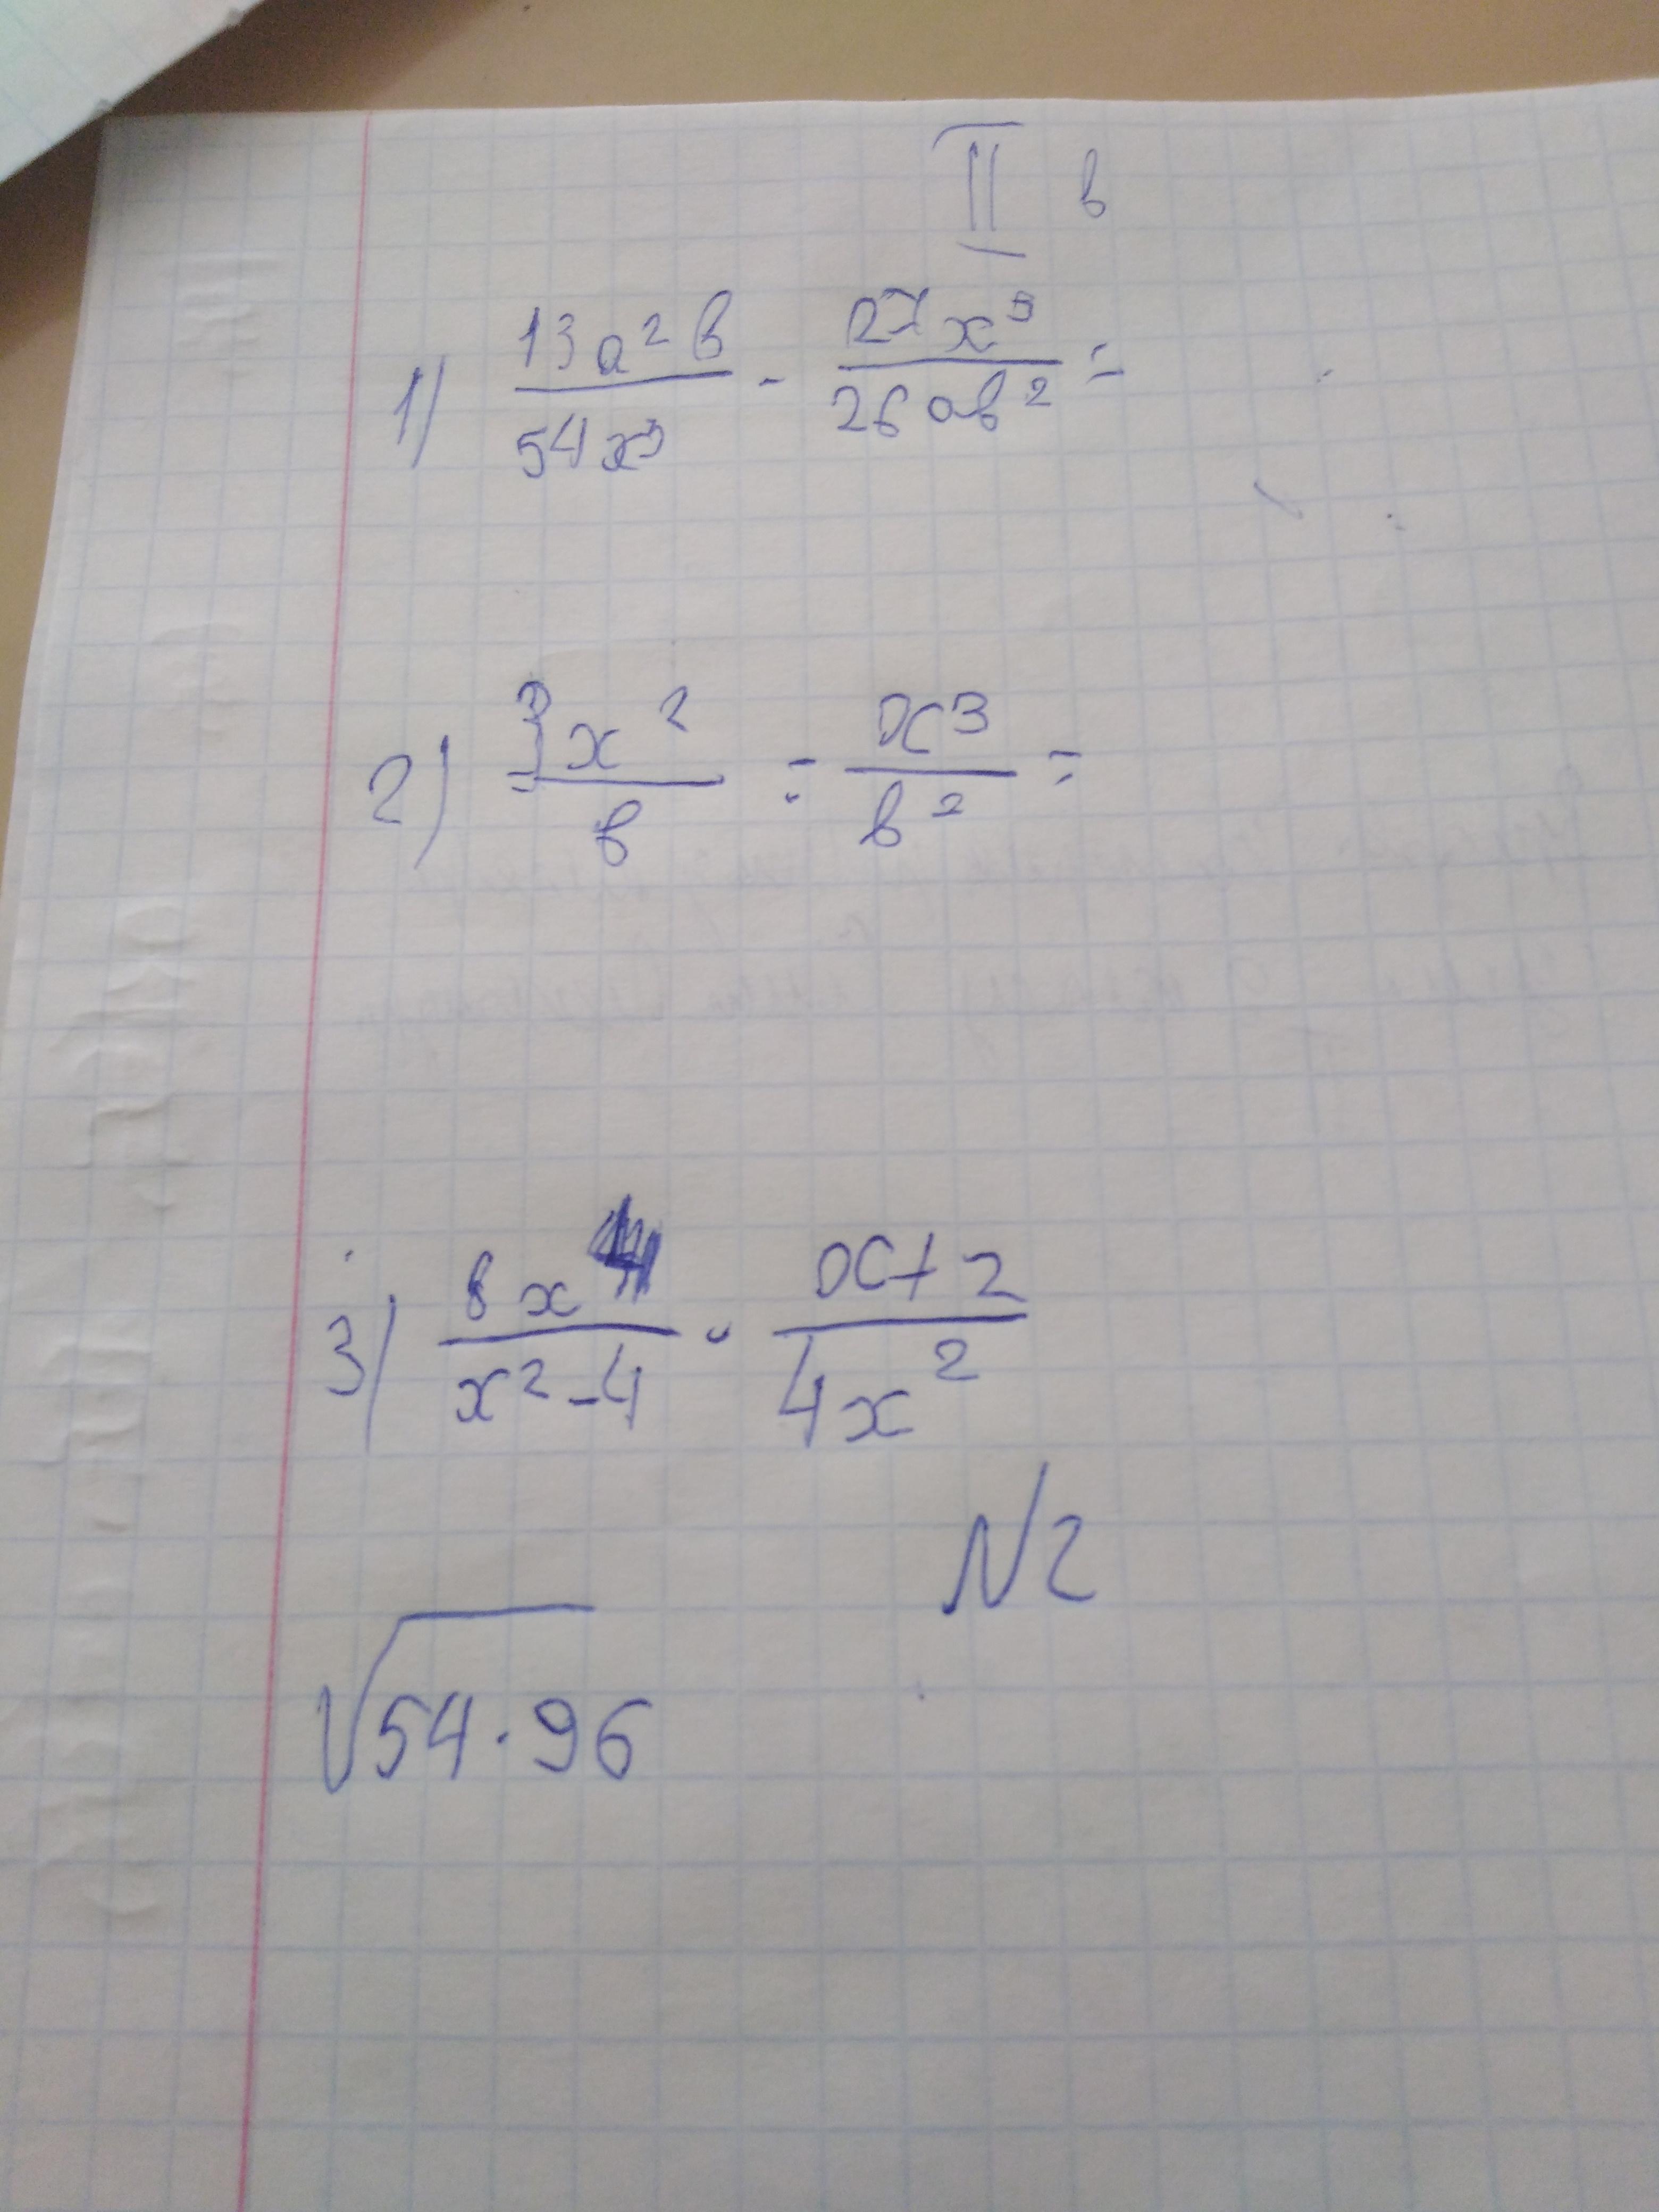 II в
1) 13a²b/54x³ · 27x³/26ab² =
2) 3x²/b : x³/b² =
3) 8x/x²-4 · x+2/4x²
N2
√54·96